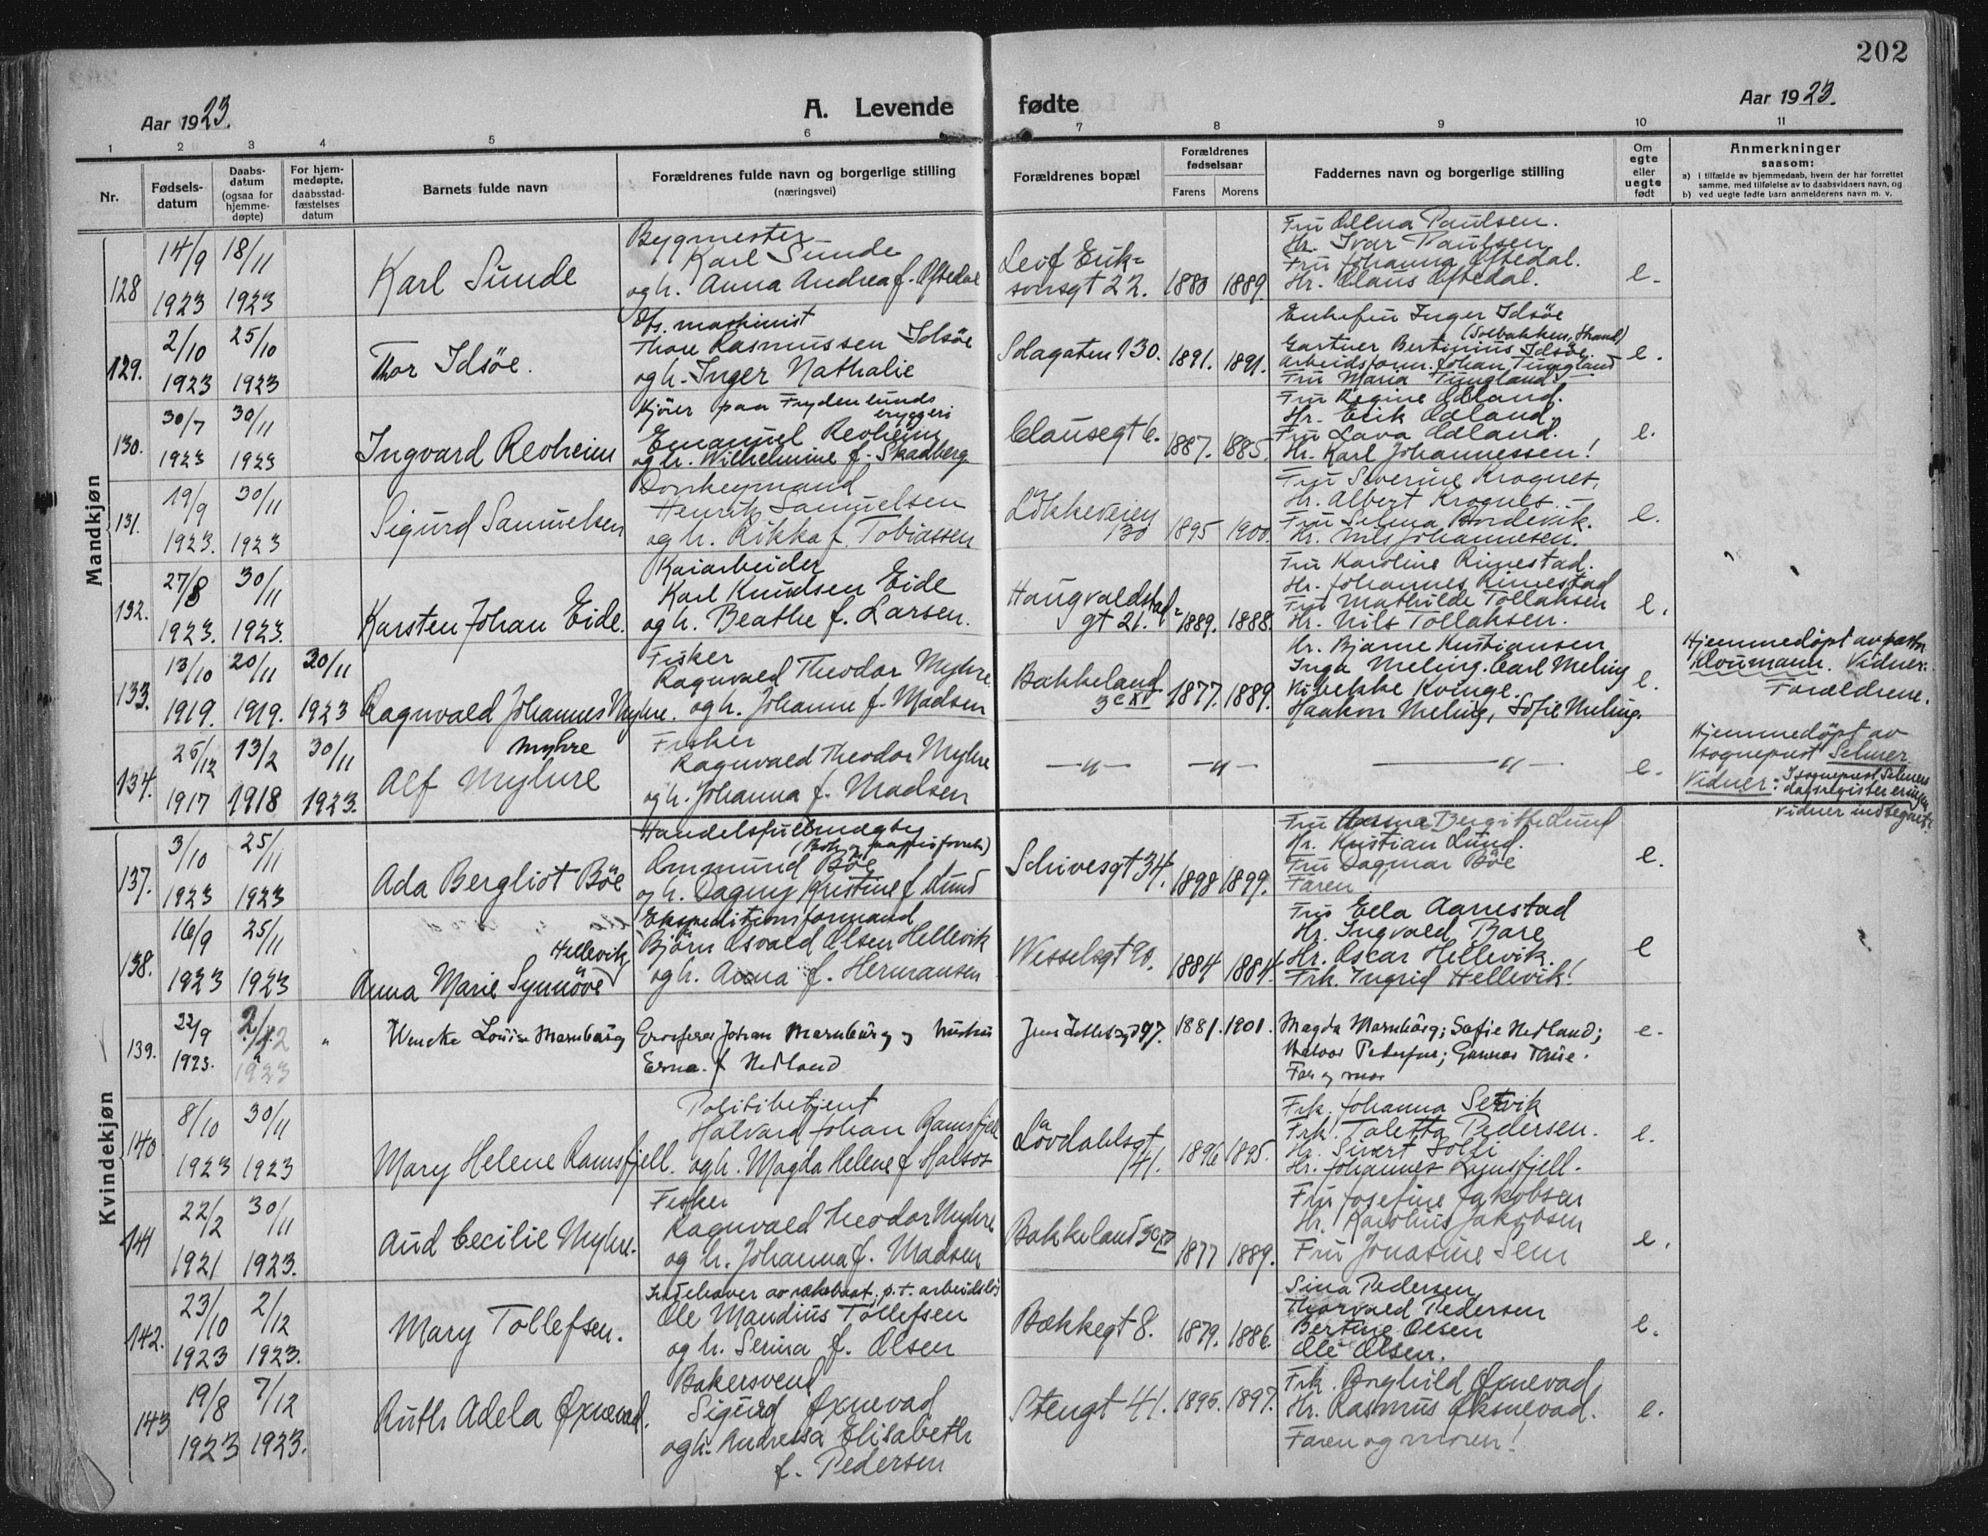 202
Aar 1923.
A. Levende fødte
Aar 1923.
1 2 3 4 5 6 7 8 9 10 11
Nr.
Fødsels-
datum
Daabs-
datum
(ogsaa for
hjemme-
døpte)
For hjem-
medøpte,
daabsstad-
fæstelses
datum
Barnets fulde navn
Forældrenes fulde navn og borgerlige stilling
(næringsvei)
Forældrenes bopæl
Forældrenes
fødselsaar
Farens Morens
Faddernes navn og borgerlige stilling
Om
egte
eller
uegte
født
Anmerkninger
saasom:
a) i tilfælde av hjemmedaab, hvem der har forrettet
samme, med tilføielse av to daabsvidners navn, og
b) ved uegte fødte barn anmelderens navn m. v.
Mandkjøn
128
14/9 1923
18/11 1923
Karl Sunde
Bygmester
Karl Sunde
og h. Anna Andrea f. Oftedal
Leif Erik-
sonsgt 22.
1880 1889.
Fru Olena Paulsen.
Hr. Ivar Paulsen
Fru Johanna Oftedal.
Hr. Claus Oftedal.
e.
129.
2/10 1923
25/10 1923
Thor Idsöe.
maskinist
Thore Rasmussen Idsöe
og h. Inger Nathalie
Solagaten 130.
1891. 1891.
Enkefru Inger Idsöe
(Solbakken, Strand)
Gartner Bertinius Idsöe.
Arbeidsform. Johan Tungland
Fru Maria Tungland.
e.
130.
30/7 1923
30/11 1923
Ingvard Revheim
Kjörer paa Frydenlunds
bryggeri
Emanuel Revheim
og h. Wilhelmine f. Skadberg
Clausegt 6.
1887. 1885.
Fru Regine Ødland.
Hr. Erik Ødland.
Fru Lava Ødland.
Hr. Karl Johannessen!
e.
131.
19/9 1923.
30/11 1923
Sigurd Samuelsen
Donkeymand
Henrik Samuelsen
og h. Rikka f. Tobiassen
Lökkeveien
130
1895 1900.
Fru Severine Krognes.
Hr. Albert Krognes.
Fru Selma
Hr. Nils Johannesen.
e.
132.
27/8 1923.
30/11 1923.
Karsten Johan Eide.
Kaiarbeider
Karl Knudsen Eide
og h. Beathe f. Larsen.
Haugvaldstad-
gt 21.
1889. 1888.
Fru Karoline Rimestad.
Hr. Johannes Rimestad
Fru Mathilde Tollaksen
Hr. Nils Tollaksen.
e.
133.
13/10 1919.
20/11 1919.
30/11 1923
Ragnvald Johannes Myhre.
Fisker
Ragnvald Theodor Myhre.
og h. Johanne f. Madsen
Bakkeland
3c XV
1877. 1889.
Hr. Bjarne Kristiansen
Inga Meling. Carl Meling
Vibekke Kvinge.
Haakon Meling, Sofie Meling.
e.
Hjemmedöpt av pastor
Kloumann. Vidner:
Forældrene.
134.
25/12 1917
13/2 1918
30/11 1923.
Myhre
Alf Myhre
Fisker
Ragnvald Theodor Myhre
og h. Johanna f. Madsen
—„—
—„—
—„—
e.
Hjemmedöpt av
sognepræst Selmer.
Vidner: I sognepræst Selmers
dagsregister er ingen
vidner indtegnet.
Kvindekjøn
137.
3/10 1923
25/11 1923
Ada Bergliot Böe
Handelsfuldmægtig
Ommund Böe
og h. Dagny Kristine f. Lund
Schivesgt 34.
1898 1899.
Fru Bergitte Lund
Hr. Kristian Lund.
Fru Dagmar Böe
Faren
e.
138.
16/9 1923
25/11 1923
Hellevik
Anna Marie Synnöve
Ekspeditionsformand
Björn Osvald Olsen Hellevik
og h. Anna f. Hermansen
Wesselsgt 90.
1884 1884.
Fru Ella Aanestad
Hr. Ingvald Bare
Hr. Oscar Hellevik.
Frk. Ingrid Hellevik!
e
139.
22/9 1923.
2/12 1923
„
Wencke Louise Marnburg
Grosserer Johan Marnburg og hustru
Erna f. Nedland
97.
1881. 1901.
Magda Marnburg; Sofie Nedland;
Halvor Pedersen; Gunnar Thise.
Far og mor
e.
140
8/10 1923
30/11 1923
Mary Helene Ramsfjell.
Politibetjent
Halvard Johan Ramsfjell
og h. Magda Helene f. Halsos
Lövdahlsgt
41.
1896 1895.
Frk. Johanna Setvik
Frk. Taletta Pedersen.
Hr. Sivert Solli
Hr. Johannes Ramsfjell.
e.
141
22/2 1921
30/11 1923.
Aud Cecilie Myhre.
Fisker
Ragnvald Theodor Myhre
og h. Johanna f. Madsen
Bakkeland 3c XV
1877 1889.
Fru Josefine Jakobsen
Hr. Karolius Jakobsen
Fru Jonasine Sem
e.
142.
23/10 1923
2/12 1923.
Mary Tollefsen.
Indehaver av rækebaat, p.t. arbeidslös
Ole Mandius Tollefsen
og h. Serina f. Olsen
Bækkegt 8.
1879. 1886.
Sina Pedersen
Thorvald Pedersen
Bertine Olsen
Ole Olsen.
e.
143
19/8 1923
7/12 1923.
Ruth Adela Øxnevad.
Bakersvend
Sigurd Øxnevad
og h. Andrea Elisabeth
f. Pedersen
Stengt 41.
1895. 1897.
Frk. Borghild Øxnevad
Hr. Rasmus Øksnevad.
Faren og moren!
e.